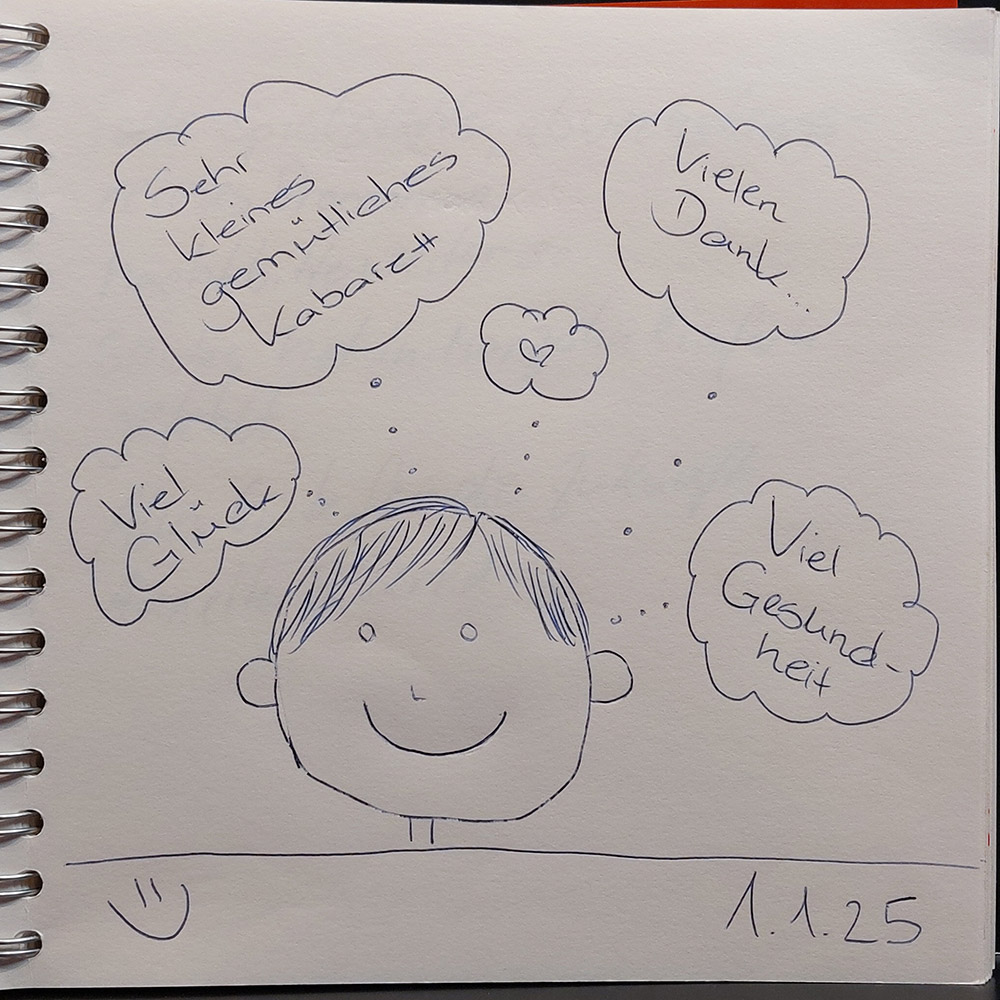 Sehr
kleines
gemütliches
Kabarett
Vielen
Dank...
Viel
Glück
Viel
Gesund-
heit
1.1.25